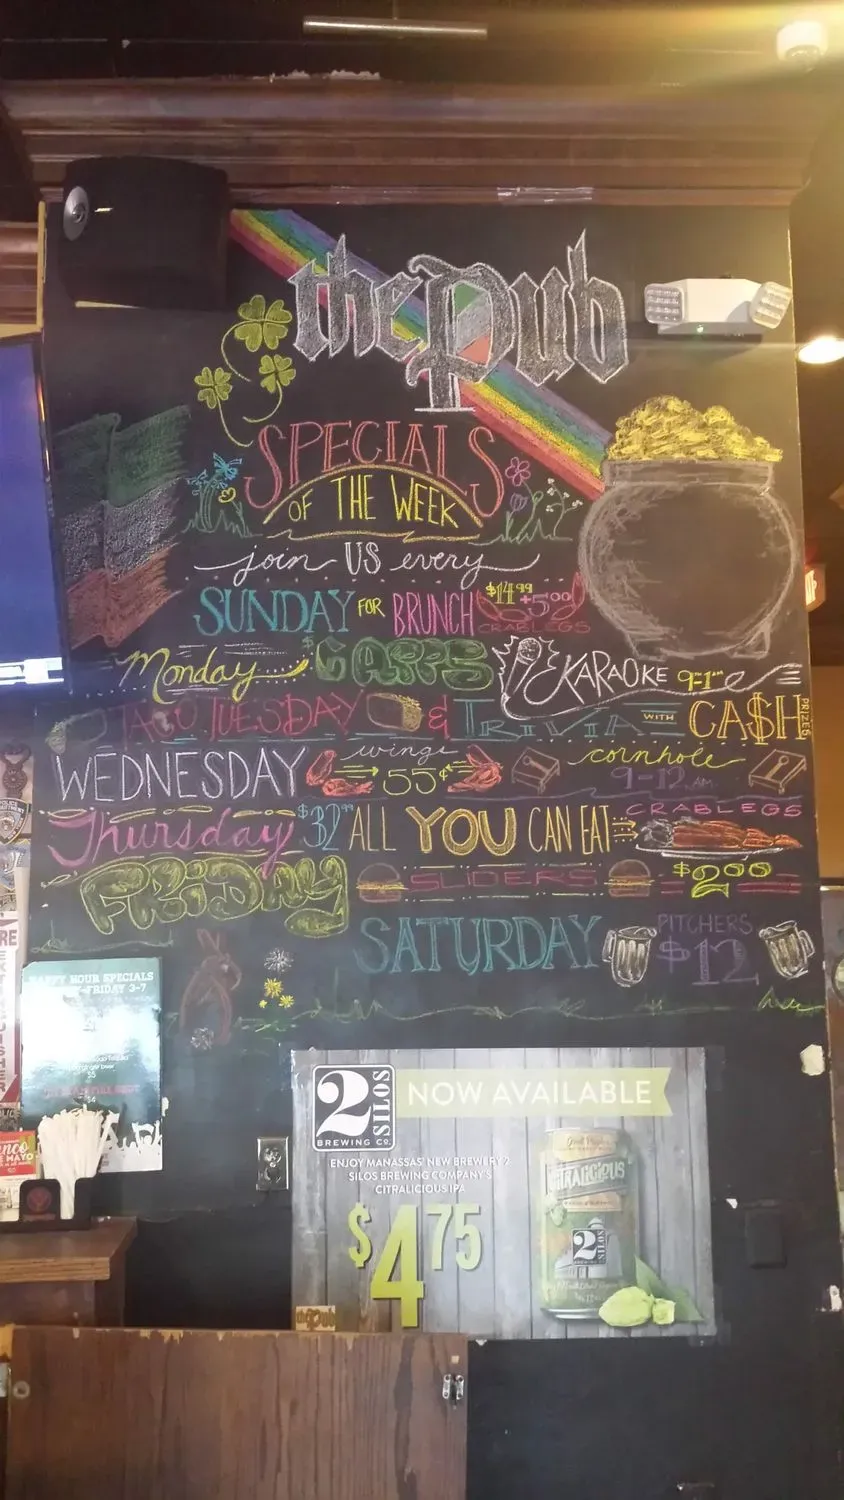 the Pub
SPECIALS
OF THE WEEK
join US every
SUNDAY FOR BRUNCH $14.99 +5.00
CRABLEGS
Monday $1 APPS KARAOKE 9-1
TACO TUESDAY & TRIVIA WITH CA$H PRIZES
WEDNESDAY wings 55¢ cornhole
9-12 AM
Thursday $32.99 ALL YOU CAN EAT CRABLEGS
FRIDAY SLIDERS $2.00
SATURDAY PITCHERS $12
HAPPY HOUR SPECIALS
FRIDAY 3-7
ginger beer
$5
2 SILOS
BREWING CO.
NOW AVAILABLE
ENJOY MANASSAS' NEW BREWERY 2
SILOS BREWING COMPANY'S
CITRALICIOUS IPA
$4.75
CITRALICIOUS
2 SILOS
the Pub
DE MAYO